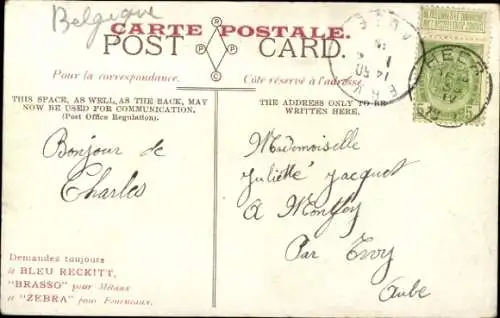 Belgique
CARTE POSTALE.
POST CARD.
Pour la correspondance.
Côte réservé à l'adresse.
THIS SPACE, AS WELL AS THE BACK, MAY
NOW BE USED FOR COMMUNICATION.
(Post Office Regulation).
THE ADDRESS ONLY TO BE
WRITTEN HERE.
Bonjour de
Charles
Mademoiselle
Juliette Jacquot
A
Par Troy
Aube
Demandez toujours
le BLEU RECKITT,
"BRASSO" pour Métaux
et "ZEBRA" pour Fourneaux.